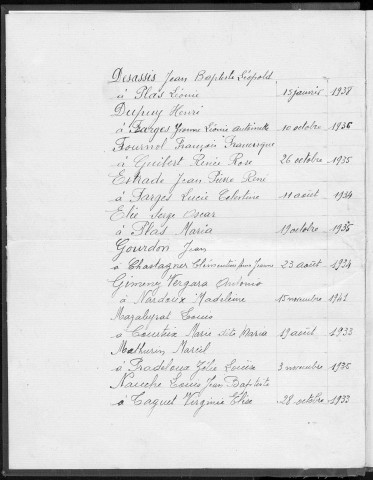 Desassis Jean Baptiste Léopold
à Plas Léonie 15 janvier 1938
Dupuy Henri
à Farges Yvonne Léonie Antoinette 10 octobre 1936
Fournol François Francisque
à Guibert Renée Rose 26 octobre 1935
Estrade Jean Pierre René
à Farges Lucie Célestine 11 août 1934
Elie Serge Oscar
à Plas Maria 19 octobre 1935
Gourdon Jean
à Chastagner Clémentine Jeanne 23 août 1934
Gimenez Vergara Antonio
à Nardoux Madeleine 15 novembre 1941
Mazaleyrat Louis
à Courteix Marie dite Maria 19 août 1933
Mathurin Marcel
à Pradeloux Zélie Louise 3 novembre 1936
Nauche Louis Jean Baptiste
à Caquet Virginie Elise 28 octobre 1933